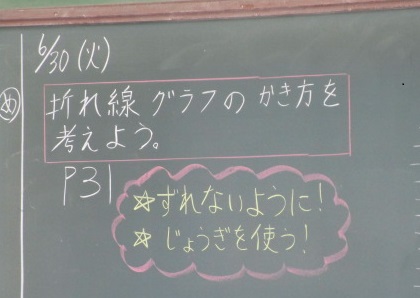 6/30(火)
め 折れ線グラフのかき方を
考えよう。
P31
☆ずれないように!
☆じょうぎを使う!